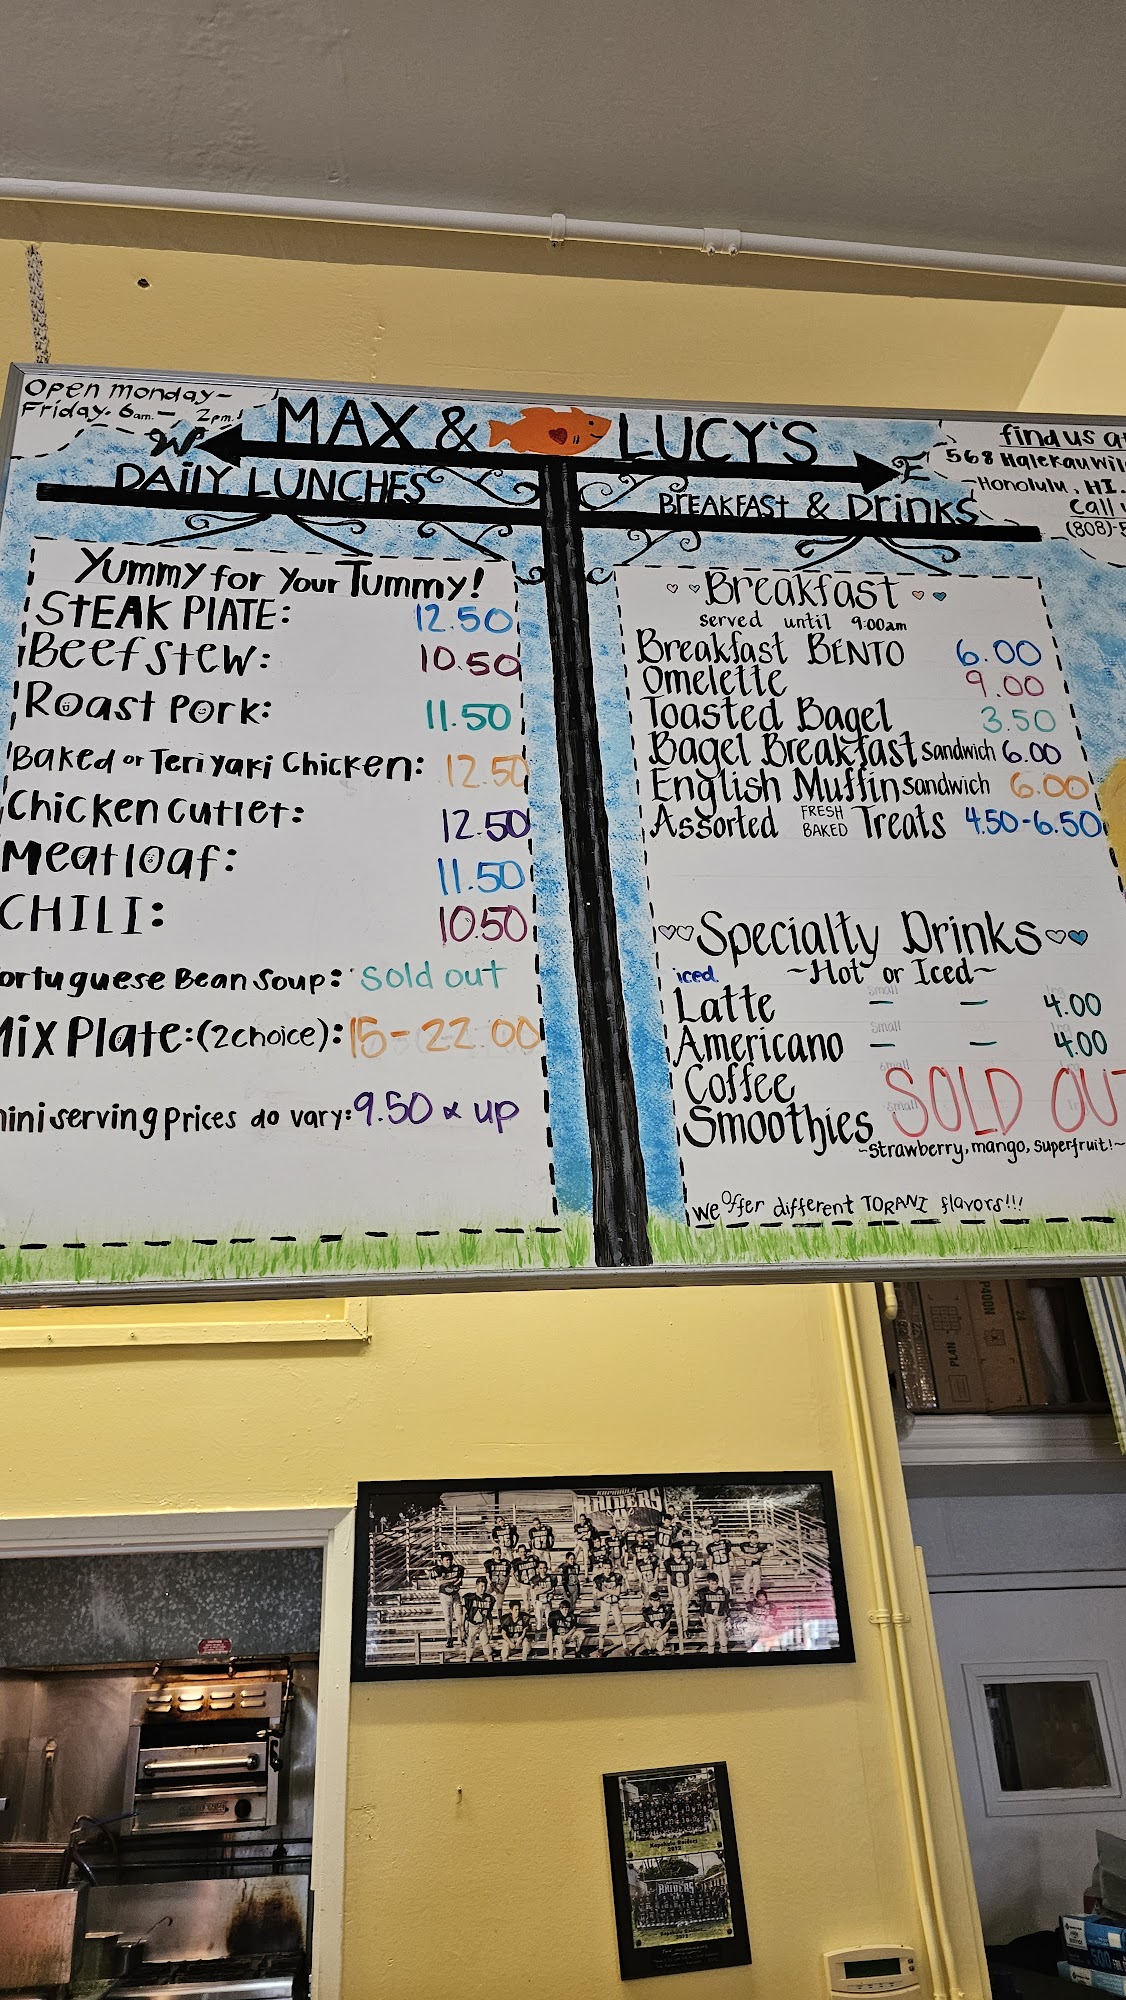 Open Monday-
Friday. 6am. - 2pm!
W
MAX & LUCY'S
E
find us at
568 Halekauwil
Honolulu, HI.
Call
(808)-5
DAILY LUNCHES
BREAKFAST & Drinks
Yummy for Your Tummy!
STEAK PLATE: 12.50
Beef stew: 10.50
Roast Pork: 11.50
Baked or Teriyaki Chicken: 12.50
Chicken Cutlet: 12.50
Meatloaf: 11.50
CHILI: 10.50
ortuguese Bean Soup: Sold out
Mix Plate: (2choice): 15-22.00
mini serving Prices do vary: 9.50 & up
Breakfast
served until 9:00am
Breakfast BENTO 6.00
Omelette 9.00
Toasted Bagel 3.50
Bagel Breakfast sandwich 6.00
English Muffin sandwich 6.00
Assorted FRESH BAKED Treats 4.50-6.50
Specialty Drinks
iced ~Hot or Iced~
Latte small — — lrg 4.00
Americano small — — lrg 4.00
Coffee small
Smoothies small SOLD OUT
~Strawberry, mango, Superfruit!~
we offer different TORANI flavors!!!
PLAN
P400N
24
RAIDERS
Kapahulu Raiders
2012
RAIDERS
Kapahulu Raiders
500